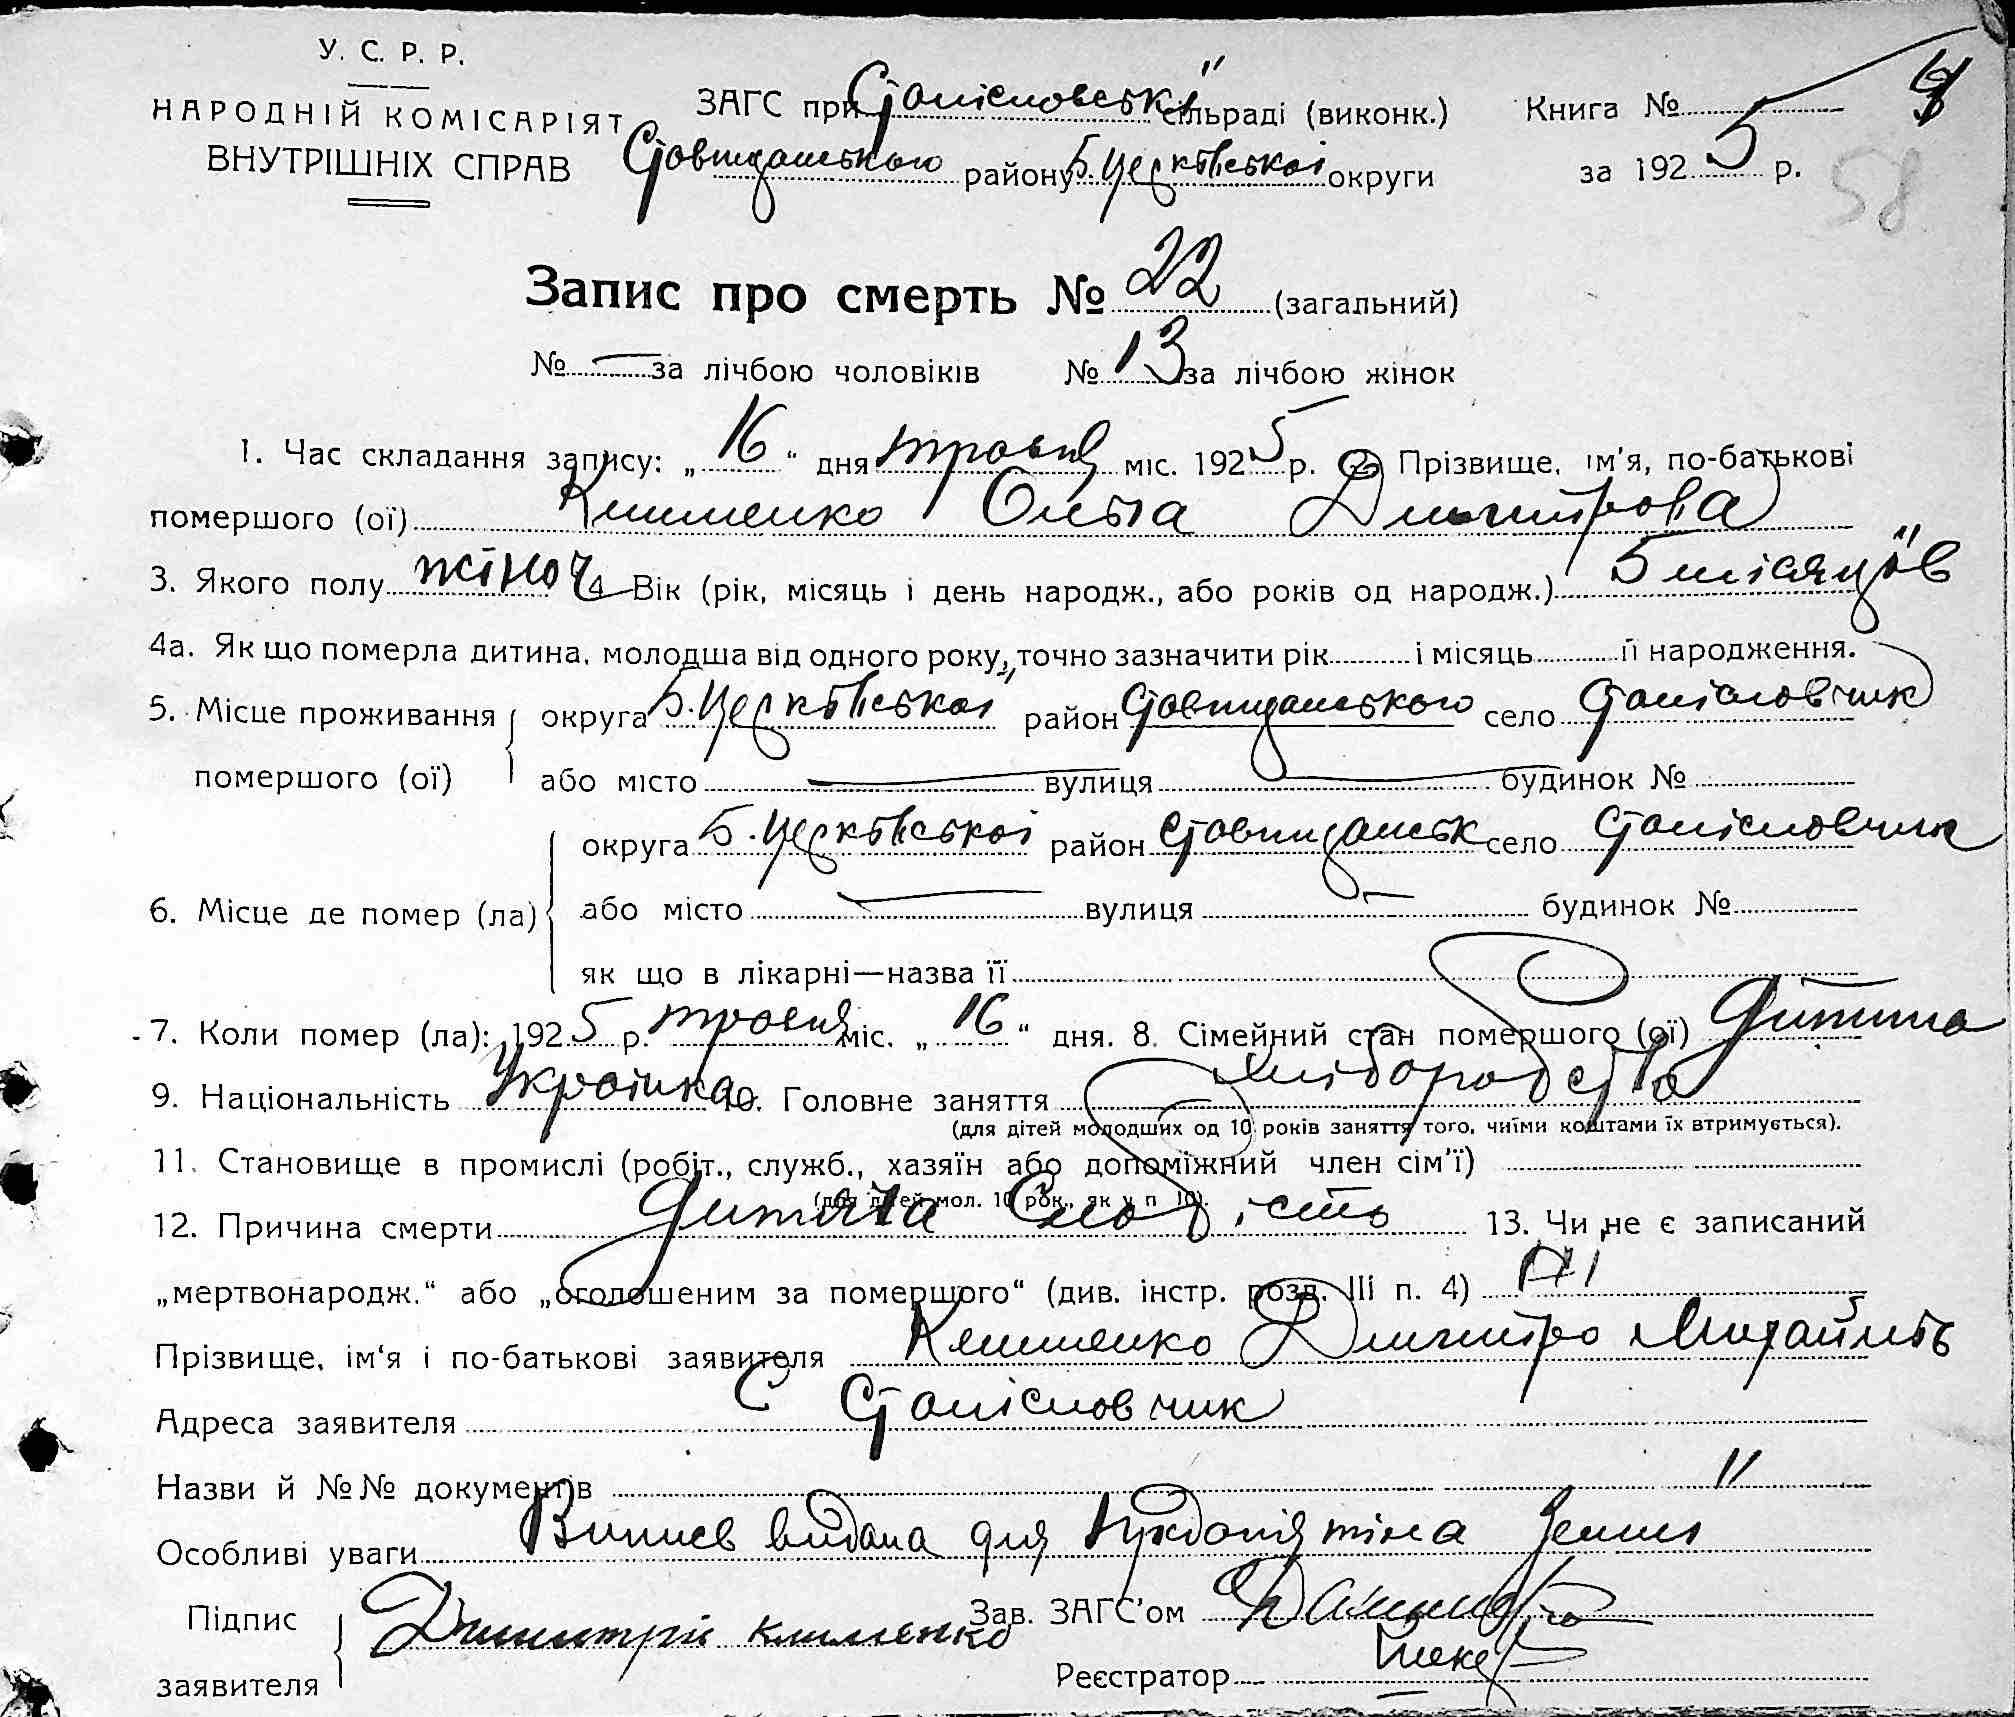 У. С. Р. Р.
НАРОДНІЙ КОМІСАРІЯТ
ВНУТРІШНІХ СПРАВ
ЗАГС при Станісловській сільраді (виконк.)
Ставищанського району Б. Церківської округи
Книга №
за 1925 р.
58
Запис про смерть № 22 (загальний)
№ — за лічбою чоловіків № 13 за лічбою жінок
1. Час складання запису: „16“ дня травня міс. 1925 р. 2. Прізвище, ім'я, по-батькові
помершого (ої) Клименко Ольга Дмитрова
3. Якого полу жіноч 4. Вік (рік, місяць і день народж., або років од народж.) 5 місяців
4а. Як що померла дитина, молодша від одного року, точно зазначити рік і місяць її народження.
5. Місце проживання округа Б. Церківської район Ставищанського село Станіславчик
помершого (ої) або місто — вулиця — будинок №
округа Б. Церківської район Ставищанськ село Станісловчик
6. Місце де помер (ла) або місто — вулиця — будинок №
як що в лікарні—назва її
7. Коли помер (ла): 1925 р. травня міс. „16“ дня. 8. Сімейний стан помершого (ої) Дитина
9. Національність Українка 10. Головне заняття хліборобство
(для дітей молодших од 10 років заняття того, чиїми коштами їх втримується).
11. Становище в промислі (робіт., служб., хазяїн або допоміжний член сім'ї)
(для дітей мол. 10 рок., як у п 10).
12. Причина смерти Дитяча Слабість 13. Чи не є записаний
„мертвонародж.“ або „оголошеним за помершого“ (див. інстр. розд. III п. 4) Ні
Прізвище, ім'я і по-батькові заявителя Клименко Дмитро Михайлів
Адреса заявителя С Станісловчик
Назви й №№ документів
Особливі уваги видана для тіла Землі
Підпис
заявителя
Димитрій клименко
Зав. ЗАГС'ом
Реєстратор